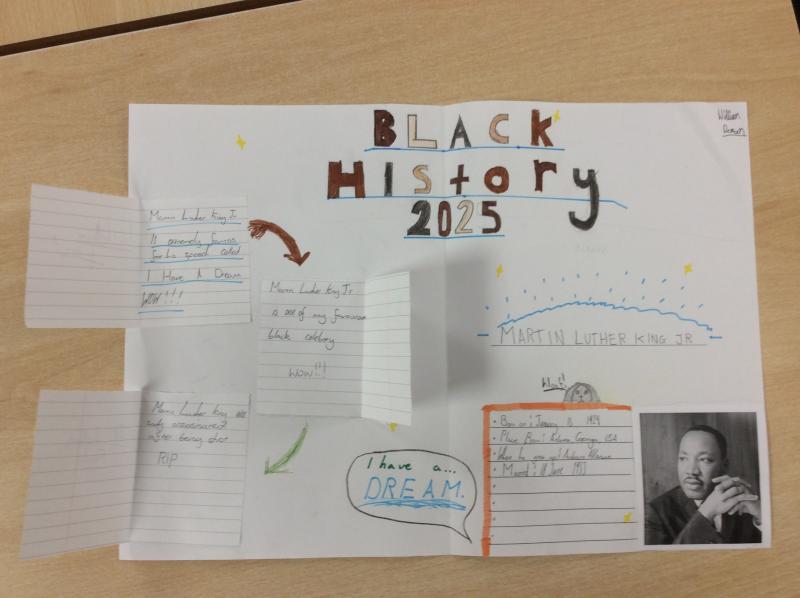 BLACK
HIStORy
2025
William
Martin Luther King Jr
Is extremely famous
for his speech called
I Have A Dream
WOW!!!
Martin Luther King Jr
is one of my favourite
black celebrity
WOW!!!
MARTIN LUTHER KING JR
Martin Luther King was
sadly assassinated
after being shot
RIP
I have a...
DREAM.
Wow!!
• Born on: January 15 1929
• Place Born: Atlanta, Georgia, USA
• Where he grew up: Auburn
• Married: 18 June 1953